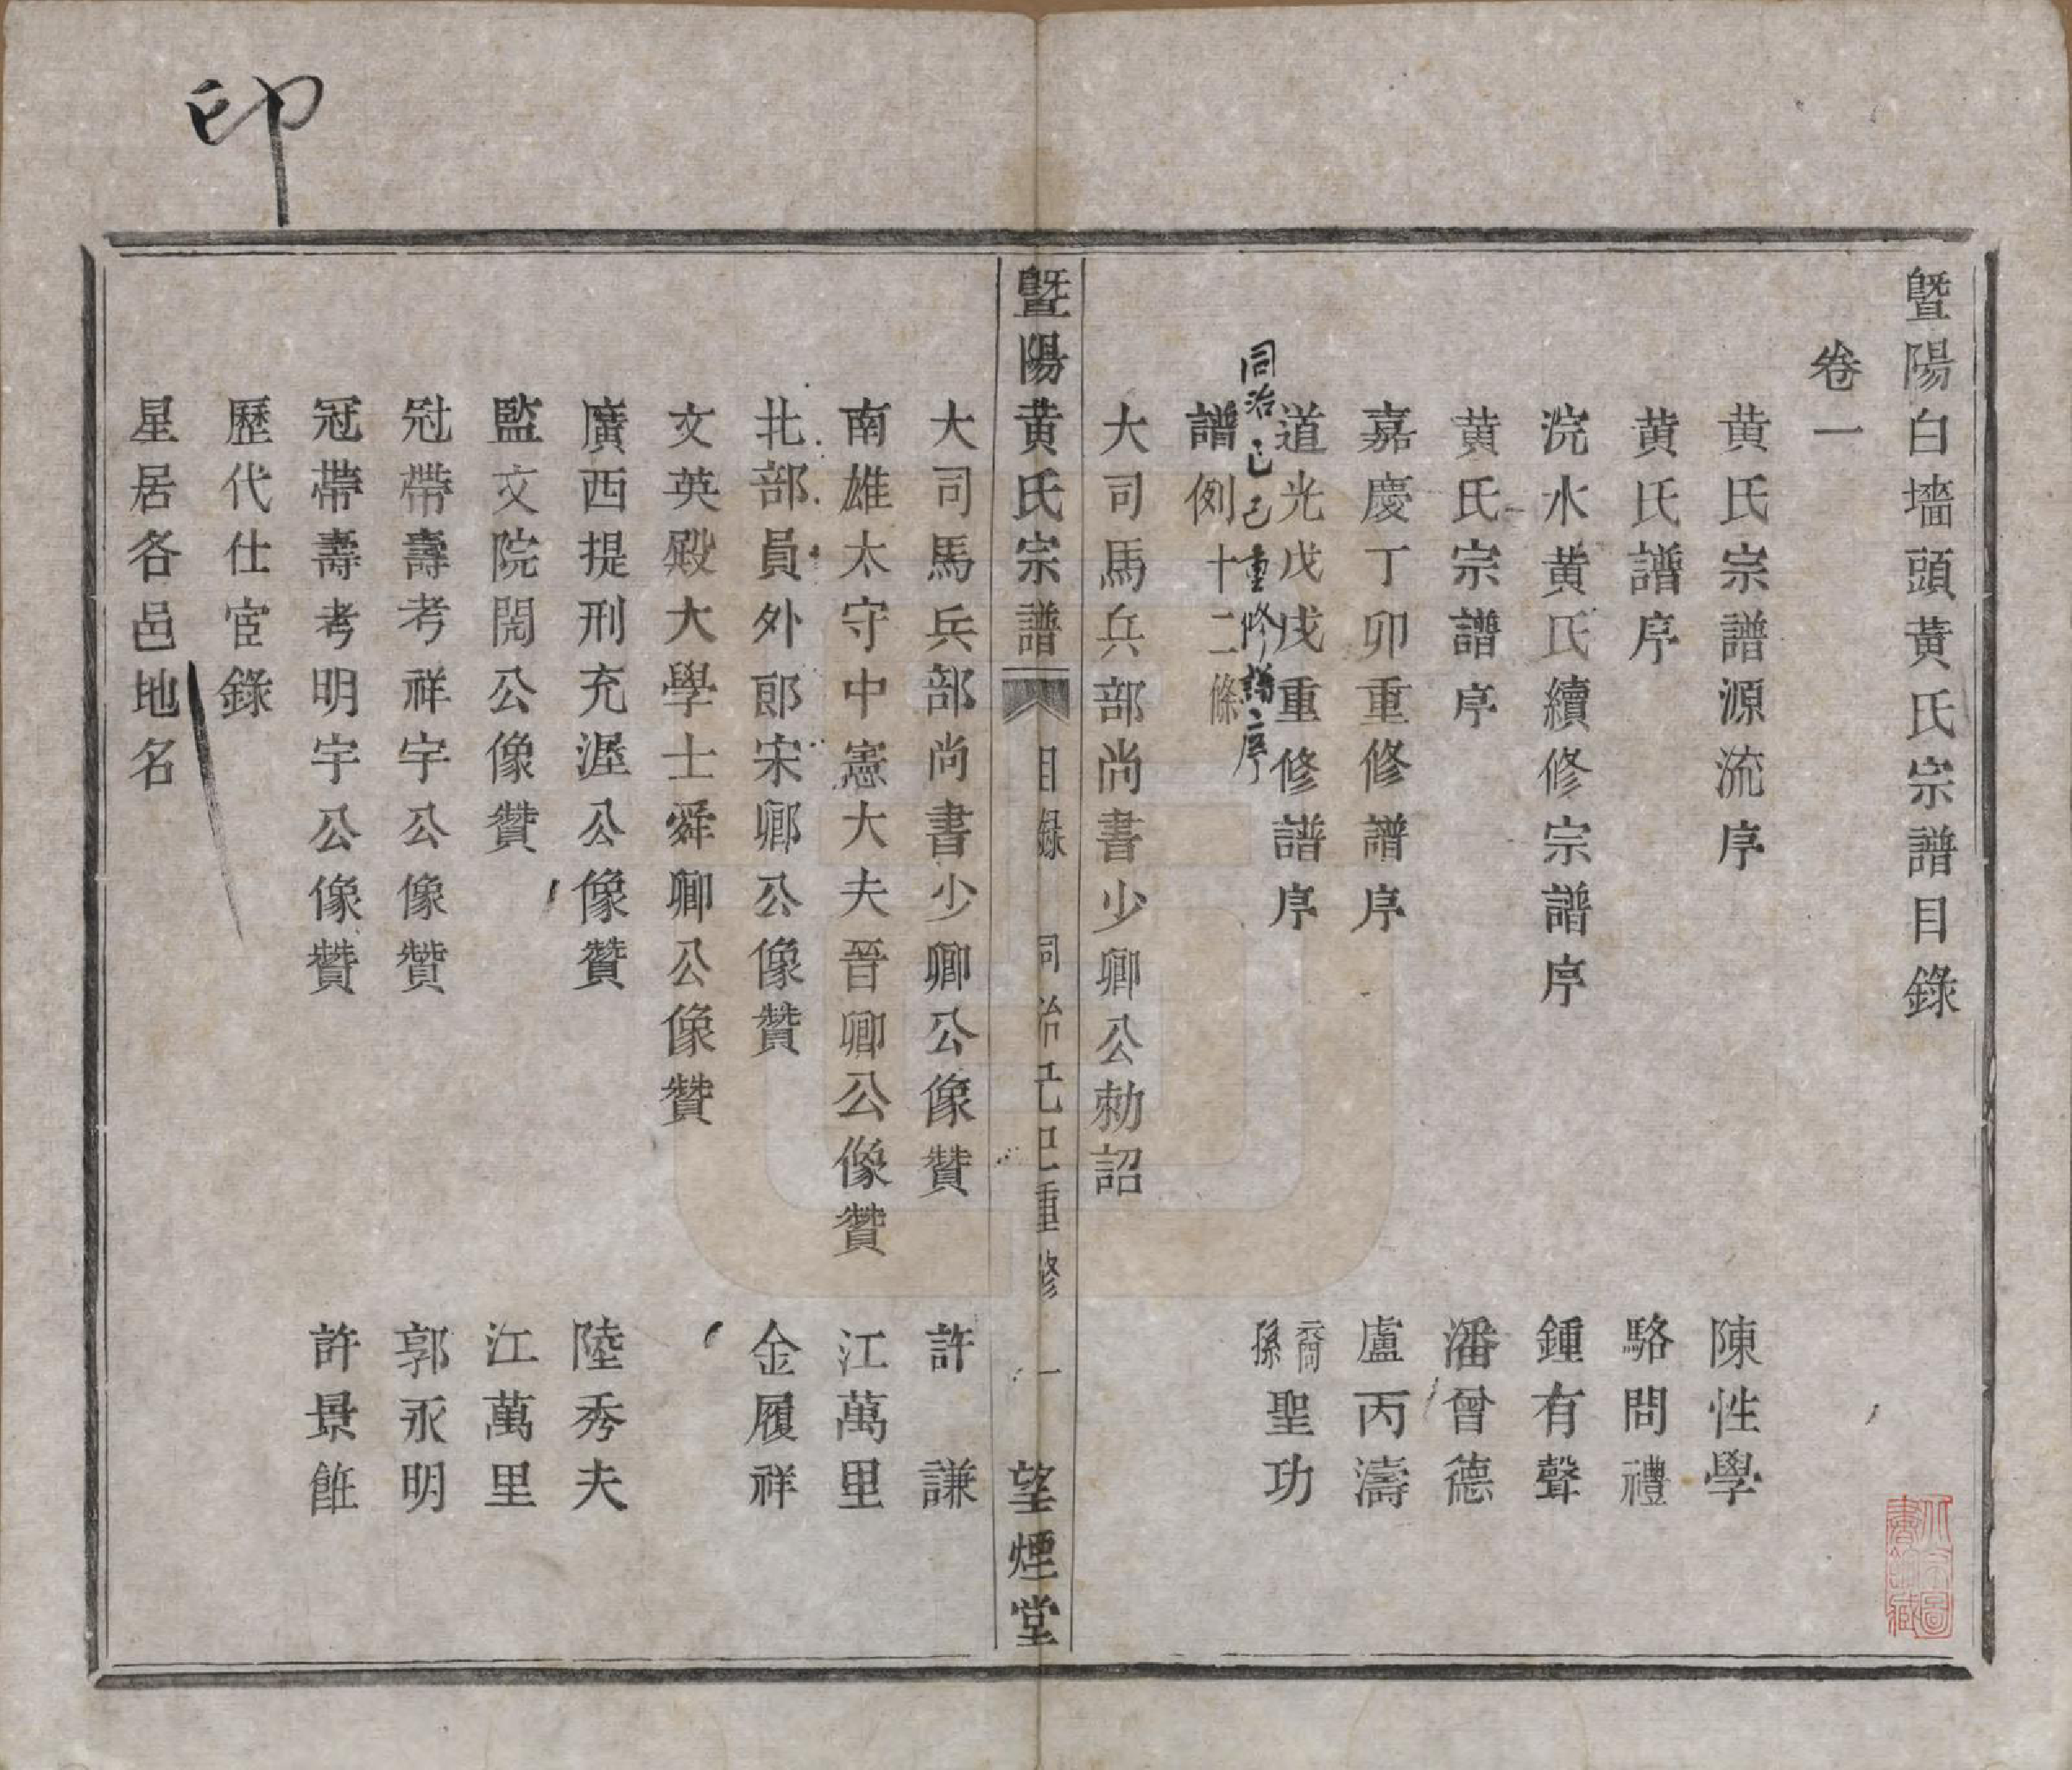 暨陽白墻頭黄氏宗譜目錄
卷一
黄氏宗譜源流序 陳性學
黄氏譜序 駱問禮
浣水黄氏續修宗譜序 鍾有聲
黄氏宗譜序 潘曾德
嘉慶丁卯重修譜序 盧丙濤
道光戊戌重修譜序 裔孫聖功
同治己巳重修譜序
譜例十二條
大司馬兵部尚書少卿公勅詔
暨陽黄氏宗譜 目錄 同治己巳重修 一 望煙堂
大司馬兵部尚書少卿公像贊 許謙
南雄太守中憲大夫晉卿公像贊 江萬里
北部員外郎宋卿公像贊 金履祥
文英殿大學士舜卿公像贊
廣西提刑充渥公像贊 陸秀夫
監文院閱公像贊 江萬里
冠帶壽考祥宇公像贊 郭永明
冠帶壽考明宇公像贊 許景
歷代仕宦錄
星居各邑地名
印